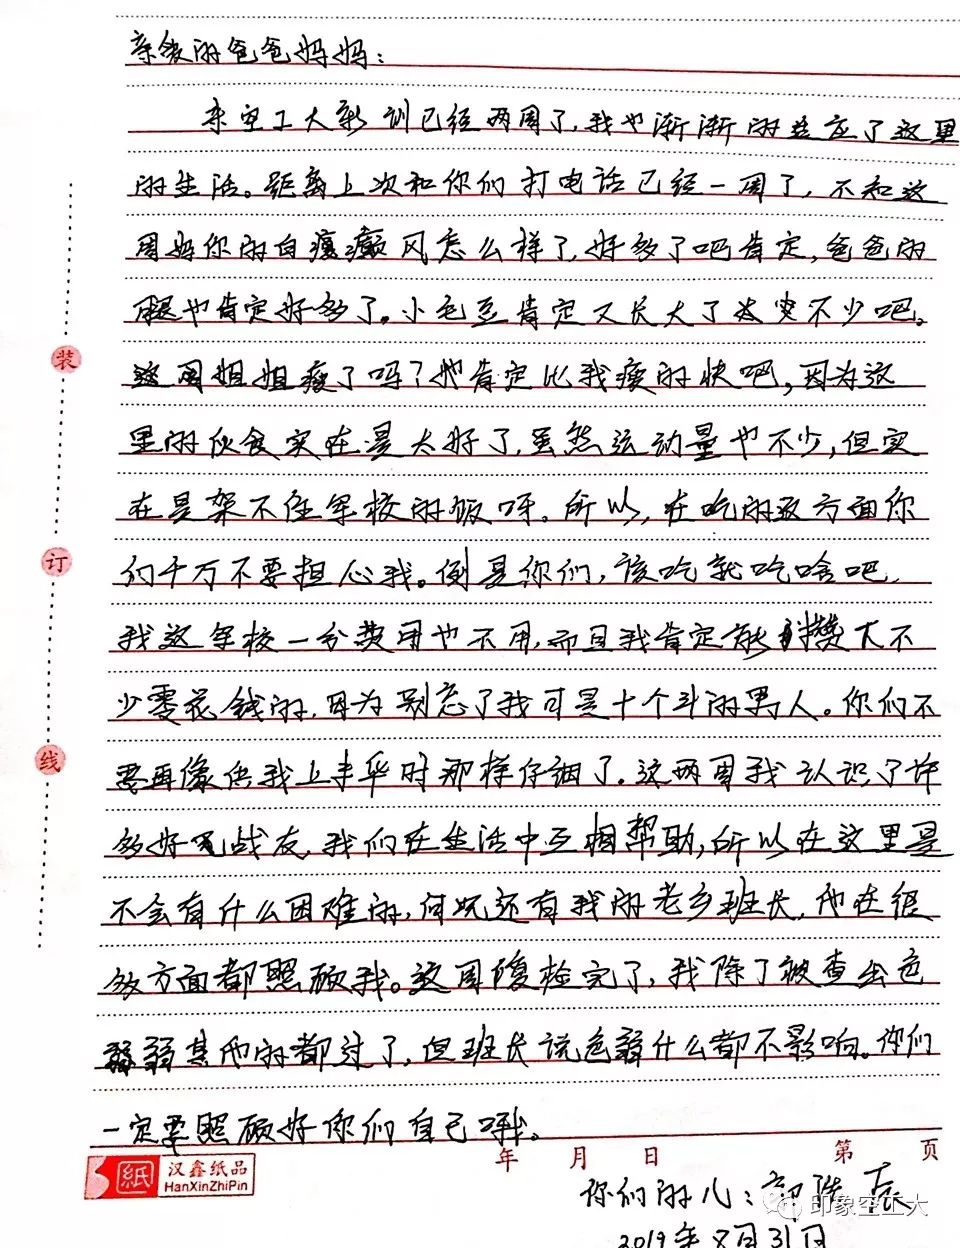 亲爱的爸爸妈妈：
来空工大新训已经两周了，我也渐渐的适应了这里
的生活。距离上次和你们打电话已经一周了，不知这
周妈你的白癜风怎么样了，好多了吧肯定，爸爸的
腿也肯定好多了。小毛豆肯定又长大了改变不少吧。
这周姐姐瘦了吗？她肯定比我瘦的快吧，因为这
里的伙食实在是太好了，虽然运动量也不少，但实
在是架不住军校的饭呀。所以，在吃的这方面你
们千万不要担心我。倒是你们，该吃就吃啥吧，
我这军校一分费用也不用，而且我肯定能攒下不
少零花钱的，因为别忘了我可是十个斗的男人。你们不
要再像供我上丰华时那样仔细了。这两周我认识了许
多好战友，我们在生活中互相帮助，所以在这里是
不会有什么困难的，何况还有我的老乡班长，他在很
多方面都照顾我。这周复检完了，我除了被查出色
弱其他的都过了，但班长说色弱什么都不影响。你们
一定要照顾好你们自己哦。
装
订
线
年 月 日 第 页
纸 汉鑫纸品
HanXinZhiPin
你们的儿：
2019年8月31日
印象空工大